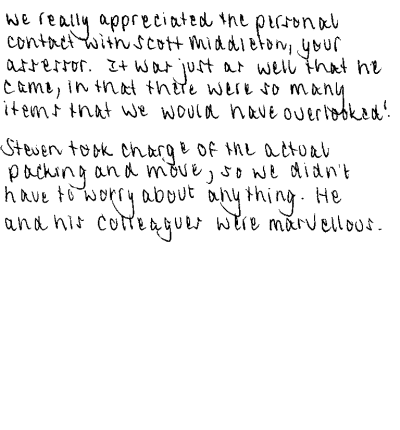 we really appreciated the personal
contact with Scott Middleton, your
assessor. It was just as well that he
came, in that there were so many
items that we would have overlooked!
Steven took charge of the actual
packing and move, so we didn't
have to worry about anything. He
and his colleagues were marvellous.